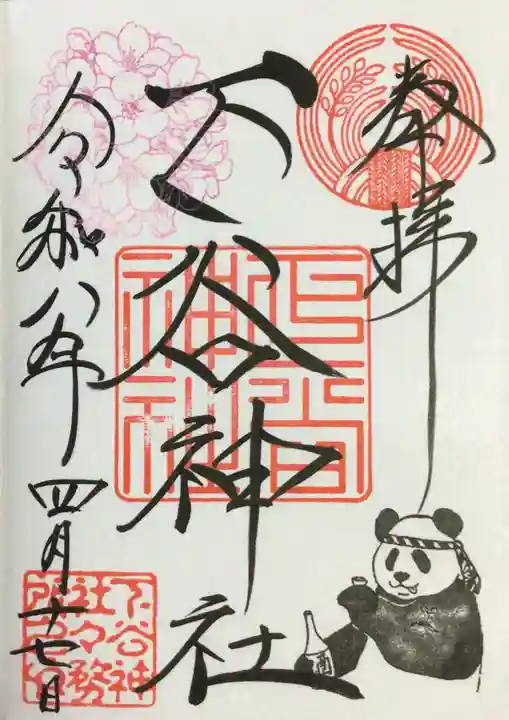 奉拝
下谷神社
令和八年四月十七日
下谷神社
下谷神
社々務
所之印
酒